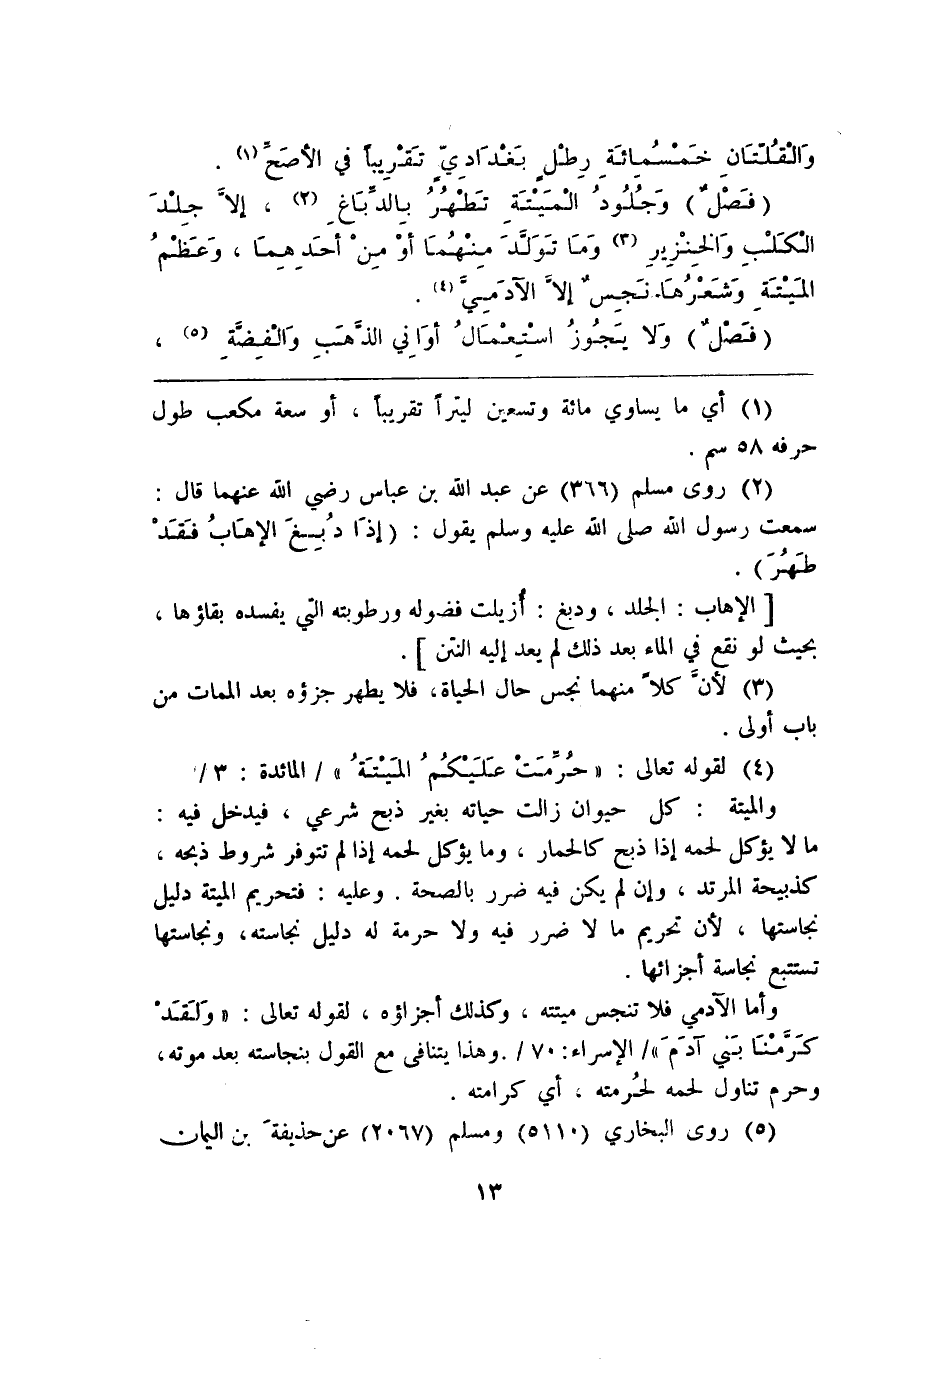 وَالْقُلَّتَانِ خَمْسُمِائَةِ رِطْلٍ بَغْدَادِيٍّ تَقْرِيباً فِي الأصَحِّ (١) .
(فَصْلٌ) وَجُلُودُ الْمَيْتَةِ تَطْهُرُ بِالدِّبَاغِ (٢) ، إلاَّ جِلْدَ
الْكَلْبِ وَالْخِنْزِيرِ (٣) وَمَا تَوَلَّدَ مِنْهُمَا أوْ مِنْ أحَدِهِمَا ، وَعَظْمُ
المَيْتَةِ وَشَعْرُهَا نَجِسٌ إلاَّ الآدَمِيَّ (٤) .
(فَصْلٌ) وَلا يَجُوزُ اسْتِعْمَالُ أوَانِي الذَّهَبِ وَالْفِضَّةِ (٥) ،
(١) أي ما يساوي مائة وتسعين ليتراً تقريباً ، أو سعة مكعب طول
حرفه ٥٨ سم .
(٢) روى مسلم (٣٦٦) عن عبد الله بن عباس رضي الله عنهما قال :
سمعت رسول الله صلى الله عليه وسلم يقول : (إذَا دُبِغَ الإهَابُ فَقَدْ
طَهُرَ) .
[ الإهاب : الجلد ، ودبغ : أُزيلت فضوله ورطوبته التي يفسده بقاؤها ،
بحيث لو نقع في الماء بعد ذلك لم يعد إليه النتن ] .
(٣) لأنَّ كلاً منهما نجس حال الحياة، فلا يطهر جزؤه بعد الممات من
باب أولى .
(٤) لقوله تعالى : « حُرِّمَتْ عَلَيْكُمُ المَيْتَةُ » / المائدة : ٣ /
والميتة : كل حيوان زالت حياته بغير ذبح شرعي ، فيدخل فيه :
ما لا يؤكل لحمه إذا ذبح كالحمار ، وما يؤكل لحمه إذا لم تتوفر شروط ذبحه ،
كذبيحة المرتد ، وإن لم يكن فيه ضرر بالصحة . وعليه : فتحريم الميتة دليل
نجاستها ، لأن تحريم ما لا ضرر فيه ولا حرمة له دليل نجاسته، ونجاستها
تستتبع نجاسة أجزائها .
وأما الآدمي فلا تنجس ميتته ، وكذلك أجزاؤه ، لقوله تعالى : « وَلَقَدْ
كَرَّمْنَا بَنِي آدَمَ »/ الإسراء: ٧٠ / .وهذا يتنافى مع القول بنجاسته بعد موته،
وحرم تناول لحمه لحُرمته ، أي كرامته .
(٥) روى البخاري (٥١١٠) ومسلم (٢٠٦٧) عن حذيفةَ بن اليمان
١٣